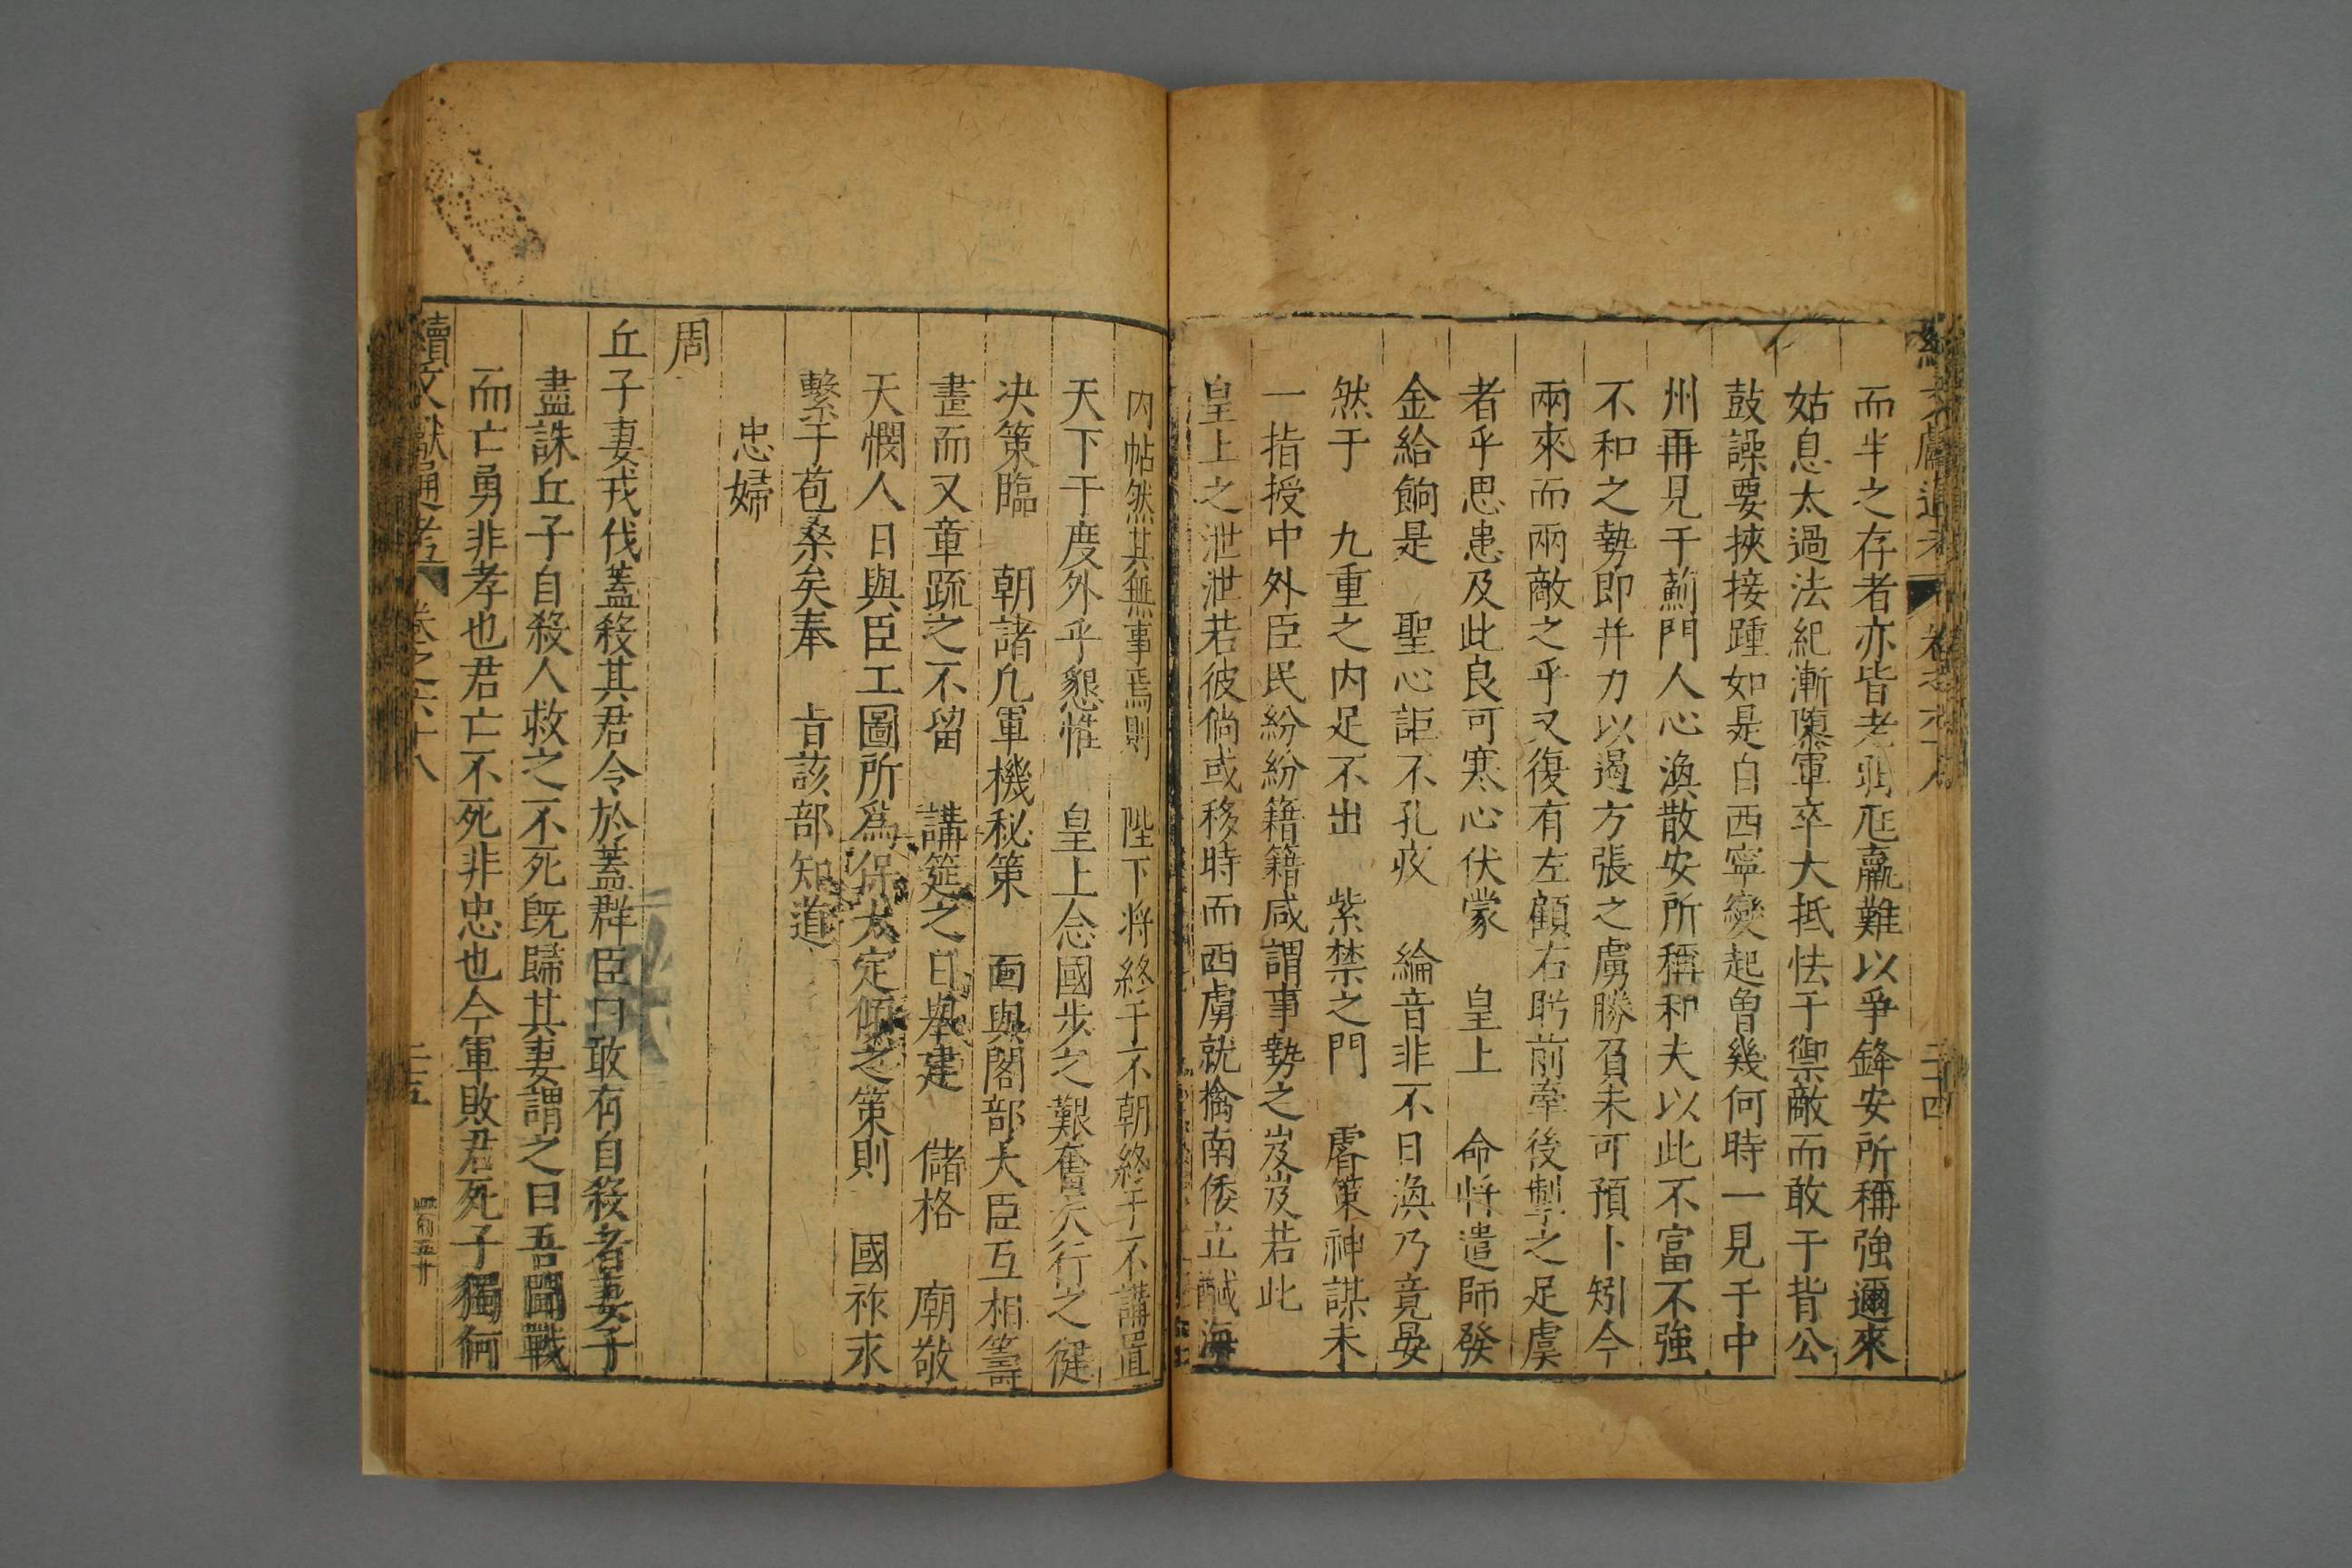 而半之存者亦皆老弱尫羸難以爭鋒安所稱強邇來
姑息太過法紀漸隳軍卒大抵怯于禦敵而敢于背公
鼓譟要挾接踵如是自西寧變起曾幾何時一見于中
州再見于薊門人心渙散安所稱和夫以此不富不強
不和之勢即并力以遏方張之虜勝負未可預卜矧今
兩來而兩敵之乎又復有左顧右盻前牽後掣之足虞
者乎思患及此良可寒心伏蒙 皇上 命將遣師發
金給餉是 聖心詎不孔疚 綸音非不日渙乃竟晏
然于 九重之内足不出 紫禁之門 睿策神謀未
一指授中外臣民紛紛籍籍咸謂事勢之岌岌若此
皇上之泄泄若彼倘或移時而西虜就擒南倭立馘海
内帖然其無事焉則 陛下将終于不朝終于不講置
天下于度外乎懇惟 皇上念國步之艱奮天行之健
决策臨 朝諸凡軍機秘策 面與閣部大臣互相籌
畫而又章疏之不留 講筵之日舉建 儲格 廟敬
天憫人日與臣工圖所爲保大定傾之策則 國祚永
繫于苞桑矣奉 旨該部知道
忠婦
周
丘子妻戎伐蓋殺其君令於蓋群臣曰敢有自殺者妻子
盡誅丘子自殺人救之不死既歸其妻謂之曰吾聞戰
而亡勇非孝也君亡不死非忠也今軍敗君死子獨何
續文獻通考 卷之六十八 二十五